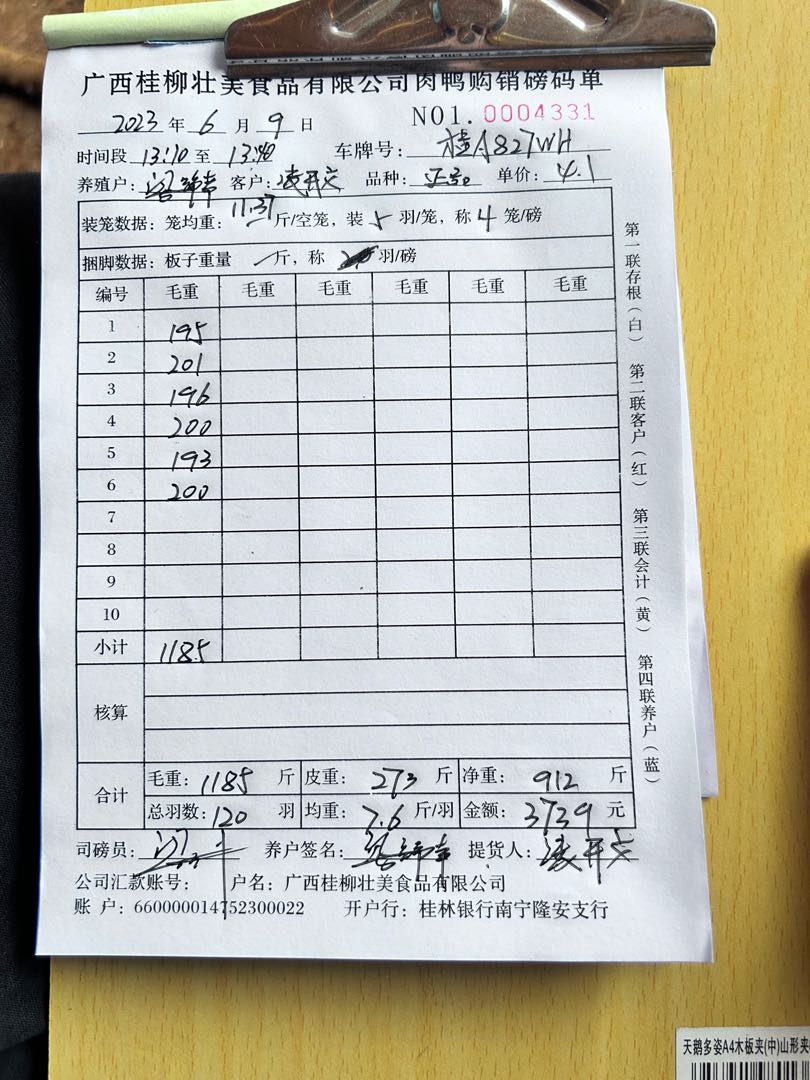 广西桂柳壮美食品有限公司肉鸭购销磅码单
2023 年 6 月 9 日 NO1. 0004331
时间段 13:10 至 13:40 车牌号: 桂A827WH
养殖户: 客户: 凌开文 品种: 单价: 4.1
装笼数据: 笼均重: 11.37 斤/空笼, 装 5 羽/笼, 称 4 笼/磅
捆脚数据: 板子重量 斤, 称 羽/磅
编号 毛重 毛重 毛重 毛重 毛重 毛重
1 195
2 201
3 196
4 200
5 193
6 200
7
8
9
10
小计 1185
核算
合计 毛重: 1185 斤 皮重: 273 斤 净重: 912 斤
总羽数: 120 羽 均重: 7.6 斤/羽 金额: 3739 元
司磅员: 养户签名: 提货人: 凌开文
公司汇款账号: 户名: 广西桂柳壮美食品有限公司
账 户: 660000014752300022 开户行: 桂林银行南宁隆安支行
第一联存根(白) 第二联客户(红) 第三联会计(黄) 第四联养户(蓝)
天鹅多姿A4木板夹(中)山形夹